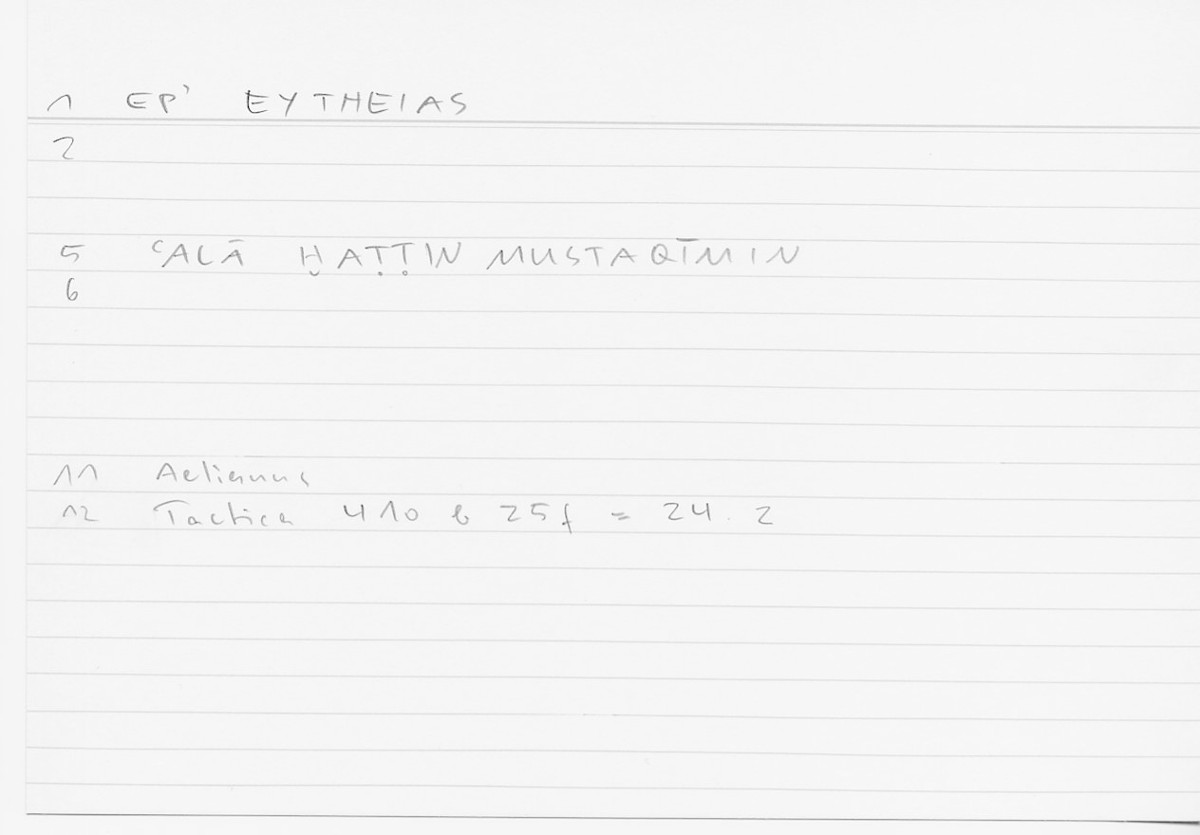 1 EP' EYTHEIAS
2
5 ʿALĀ ḪAṬṬIN MUSTAQĪMIN
6
11 Aelianus
12 Tactica 410 b 25f = 24.2